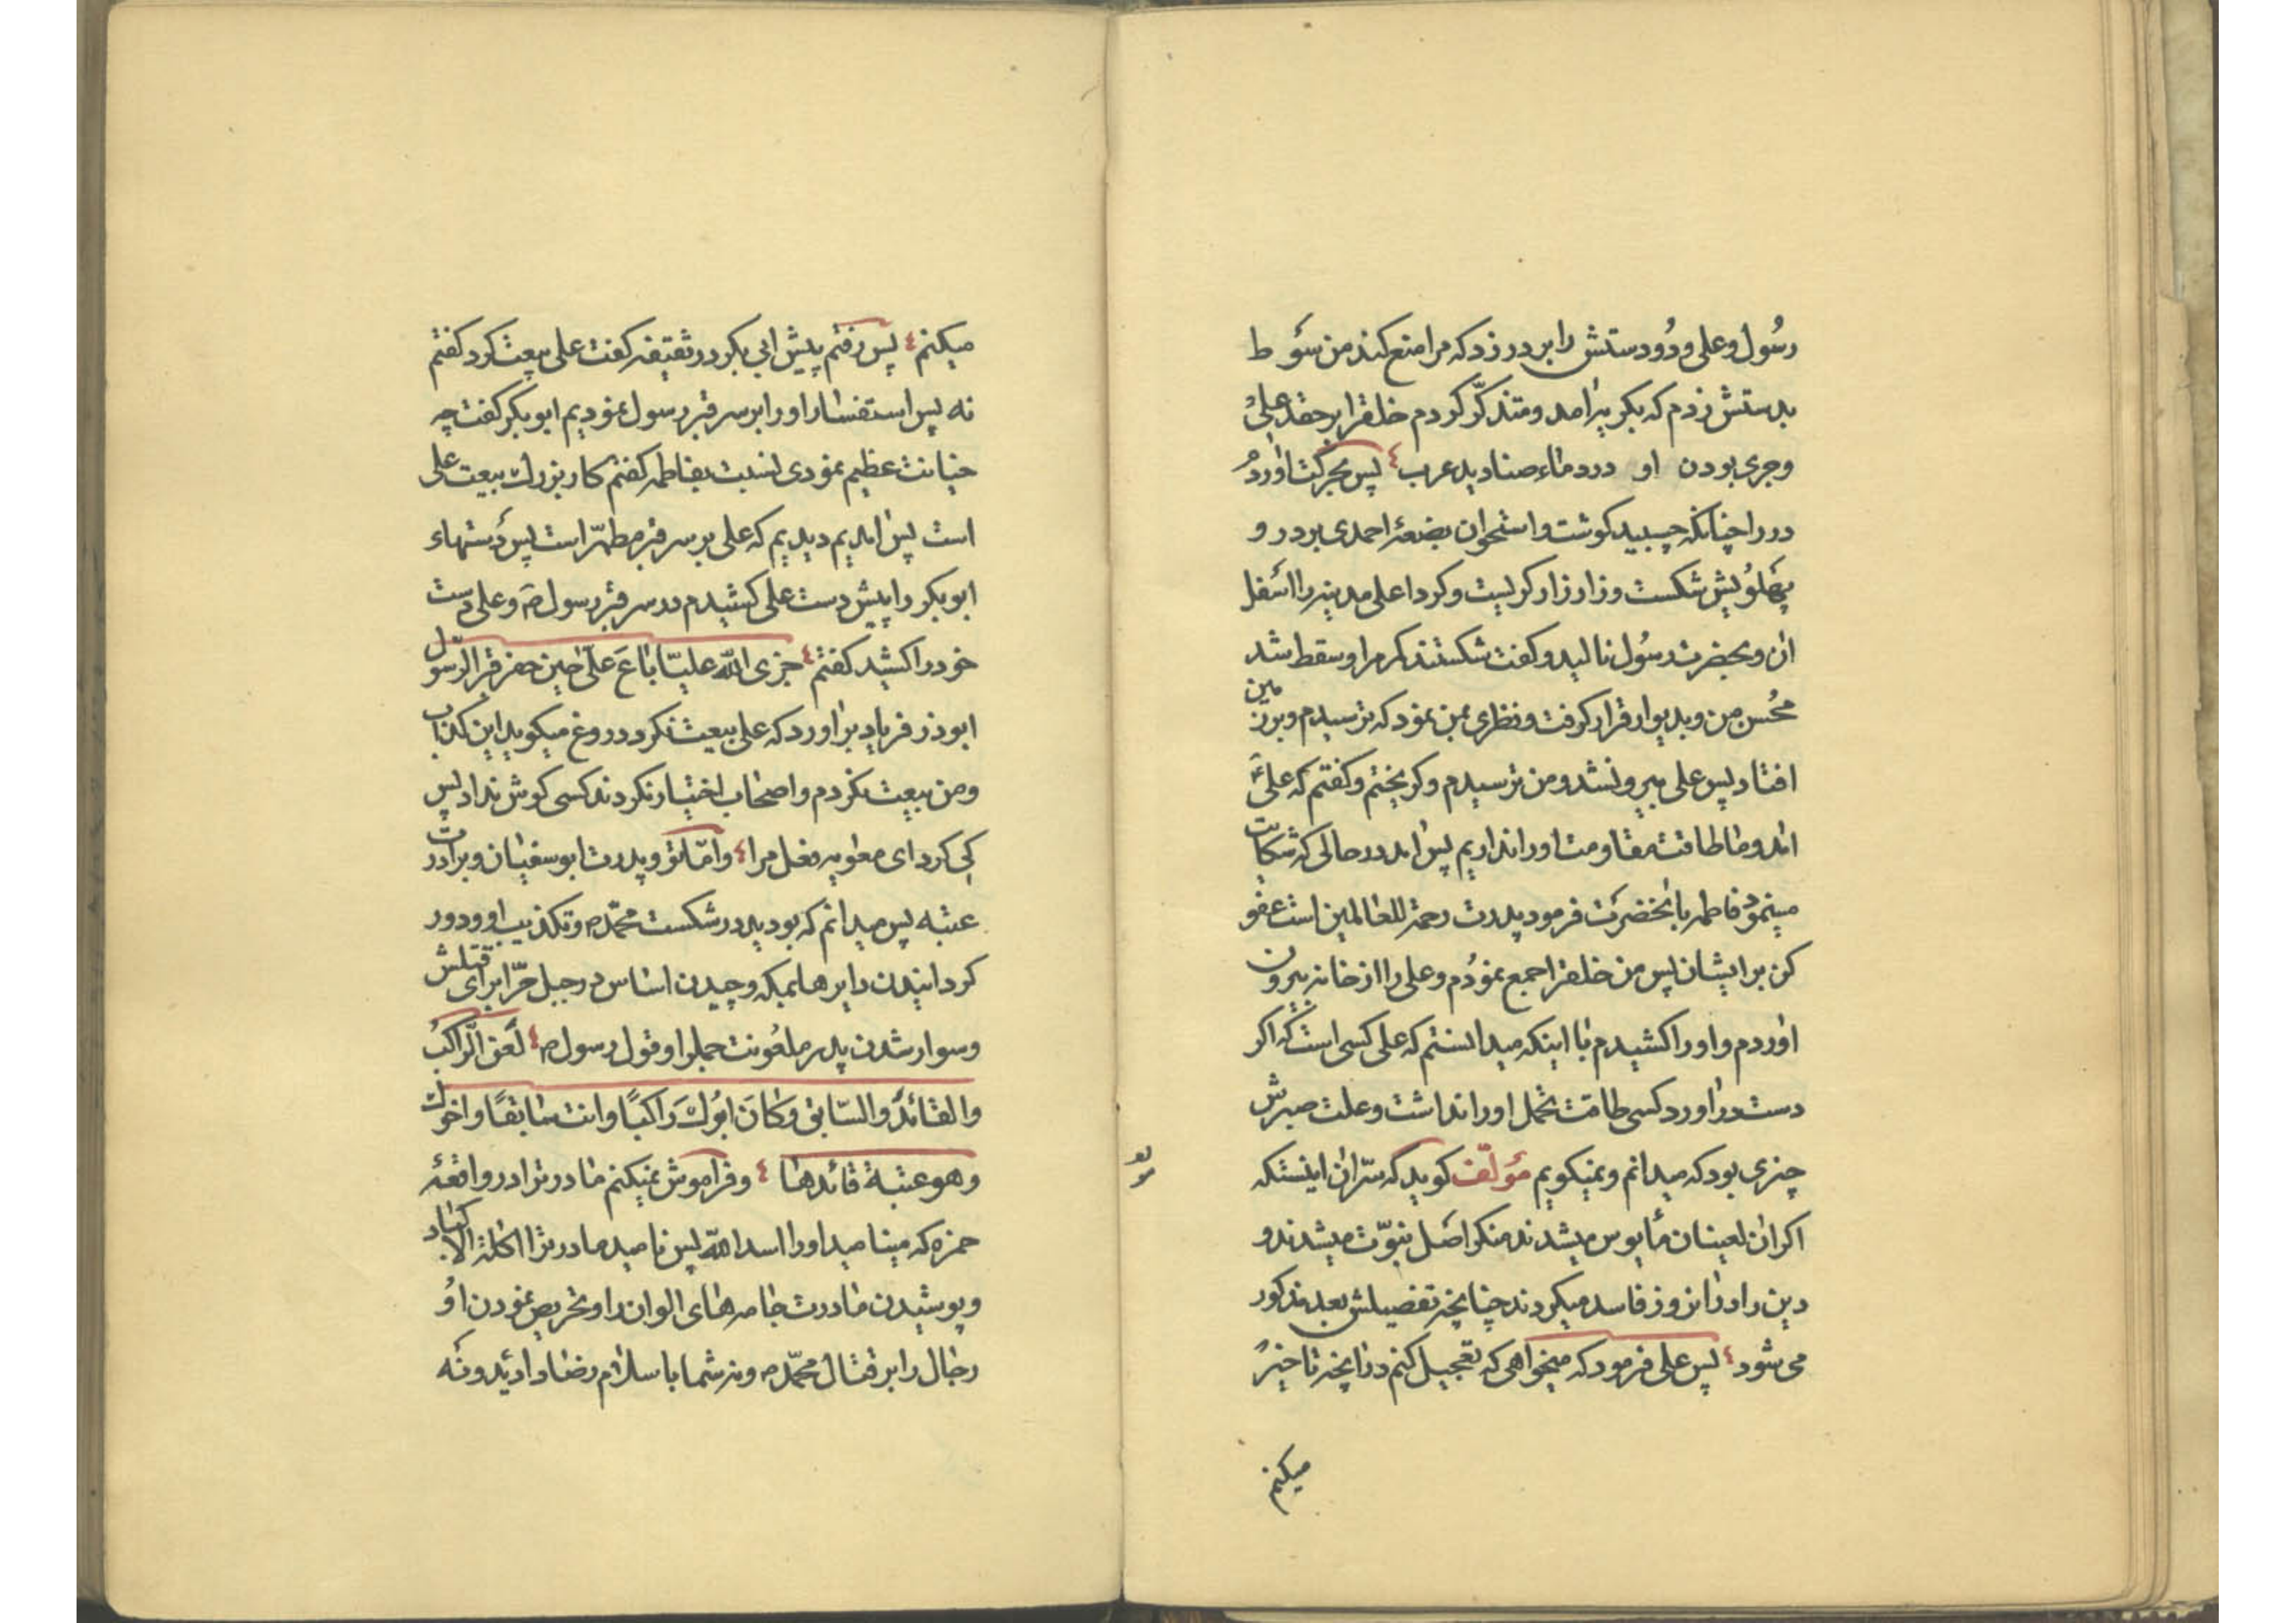 رسول و علی و دو دستش را بر در زد که مرا منع کند من سوط
بدستش زدم که بگریه آمد و متذکر کردم خلق را بر حقد علی
و جری بودن او در دماء صنادید عرب پس بحرکت آوردم
در را چنانکه چسبید کوشت و استخوان بضعهٔ احمدی بر در و
پهلویش شکست و زار زار کریست و کرد اعلی مدینه را اسفل
ان و بحضرت رسول نالید و کفت شکستند کمر مرا و سقط شد
محسن من و بدیوار قرار کرفت و نظری بمن نمود که ترسیدم و بزمین
افتاد پس علی بیرون شد و من ترسیدم و کریختم و کفتم که علی
آمد و ما طاقت مقاومت او را نداریم پس آمد در حالی که شکایت
مینمود فاطمه بانحضرت فرمود پدرت رحمة للعالمین است عفو
کن بر ایشان پس من خلق را جمع نمودم و علی را از خانه بیرون
اوردم و او را کشیدم با اینکه میدانستم که علی کسی است که اکر
دست در اورد کسی طاقت تحمل او را نداشت و علت صبرش
چیزی بود که میدانم و نمیکویم مؤلف کوید که سرّ ان اینستکه
اکر ان لعینان مأیوس میشدند منکر اصل نبوّت میشدند و
دین را در انروز فاسد میکردند چنانچه تفصیلش بعد مذکور
می شود پس علی فرمود که میخواهی که تعجیل کنم در انچه تاخیر
میکنم
میکنم پس رفتم پیش ابی بکر در ثقیفه کفت علی بیعت کرد کفتم
نه پس استفسار او را بر سر قبر رسول نمودیم ابوبکر کفت چه
خیانت عظیم نمودی نسبت بفاطمه کفتم کار بزرك بیعت علی
است پس امدیم دیدیم که علی بر سر قبر مطهّر است پس دستهاء
ابوبکر را پیش دست علی کشیدم در سر قبر رسول ص و علی دست
خود را کشید کفتم جزی الله علیّا باع علی حین حضر قبر الرّسول
ابوذر فریاد براورد که علی بیعت نکرد دروغ میکوید این کذاب
و من بیعت نکردم و اصحاب اختیار نکردند کسی کوش نداد پس
کی کرد ای معویه فعل مرا و امّا تو و پدرت ابوسفیان و برادرت
عتبه پس میدانم که بودید در شکست محمّد ص و تکذیب او و دور
کردانیدن دایرها بمکه و چیدن اساس در جبل حرّا برای قتلش
و سوار شدن پدر ملعونت جمل را و قول رسول ص لعن الرّاکب
والقائد والسّایق و کان ابوك راکبًا وانت سایقًا واخوك
وهو عتبة قائدها و فراموش نمیکنم مادر ترا در واقعهٔ
حمزه که مینامید او را اسد الله پس نامیدم مادر ترا اکلة الاکباد
و پوشیدن مادرت جامه های الوان را و تحریص نمودن او
رجال را بر قتال محمّد ص و نه شما باسلام رضا دادید و نه